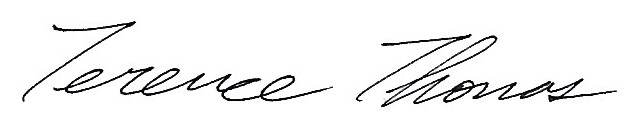 Terence Thomas